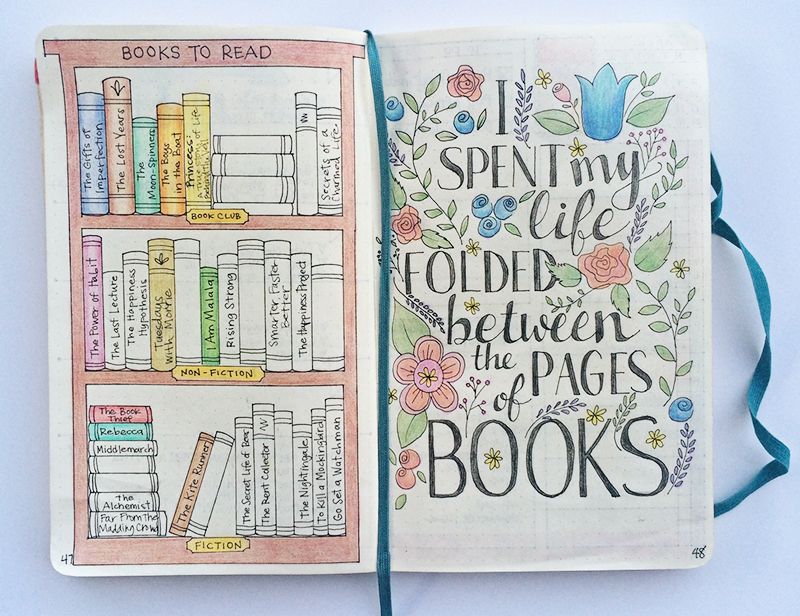 BOOKS TO READ
The Gifts of
Imperfection
The Lost Years
The
Moon-spinners
The Boys
in the Boat
Princess
A True Story of Life
Behind the Veil
Secrets of a
Charmed Life
BOOK CLUB
The Power of Habit
The Last Lecture
The Happiness
Hypothesis
Tuesdays
With Morrie
I Am Malala
Rising Strong
Smarter Faster
Better
The Happiness Project
NON-FICTION
The Book
Thief
Rebecca
Middlemarch
the
Alchemist
Far From The
Madding Crowd
The Kite Runner
The Secret Life of Bees
The Rent Collector
The Nightingale
To Kill a Mockingbird
Go Set a Watchman
FICTION
47
I
SPENT my
life
FOLDED
between
the PAGES
of
BOOKS
48